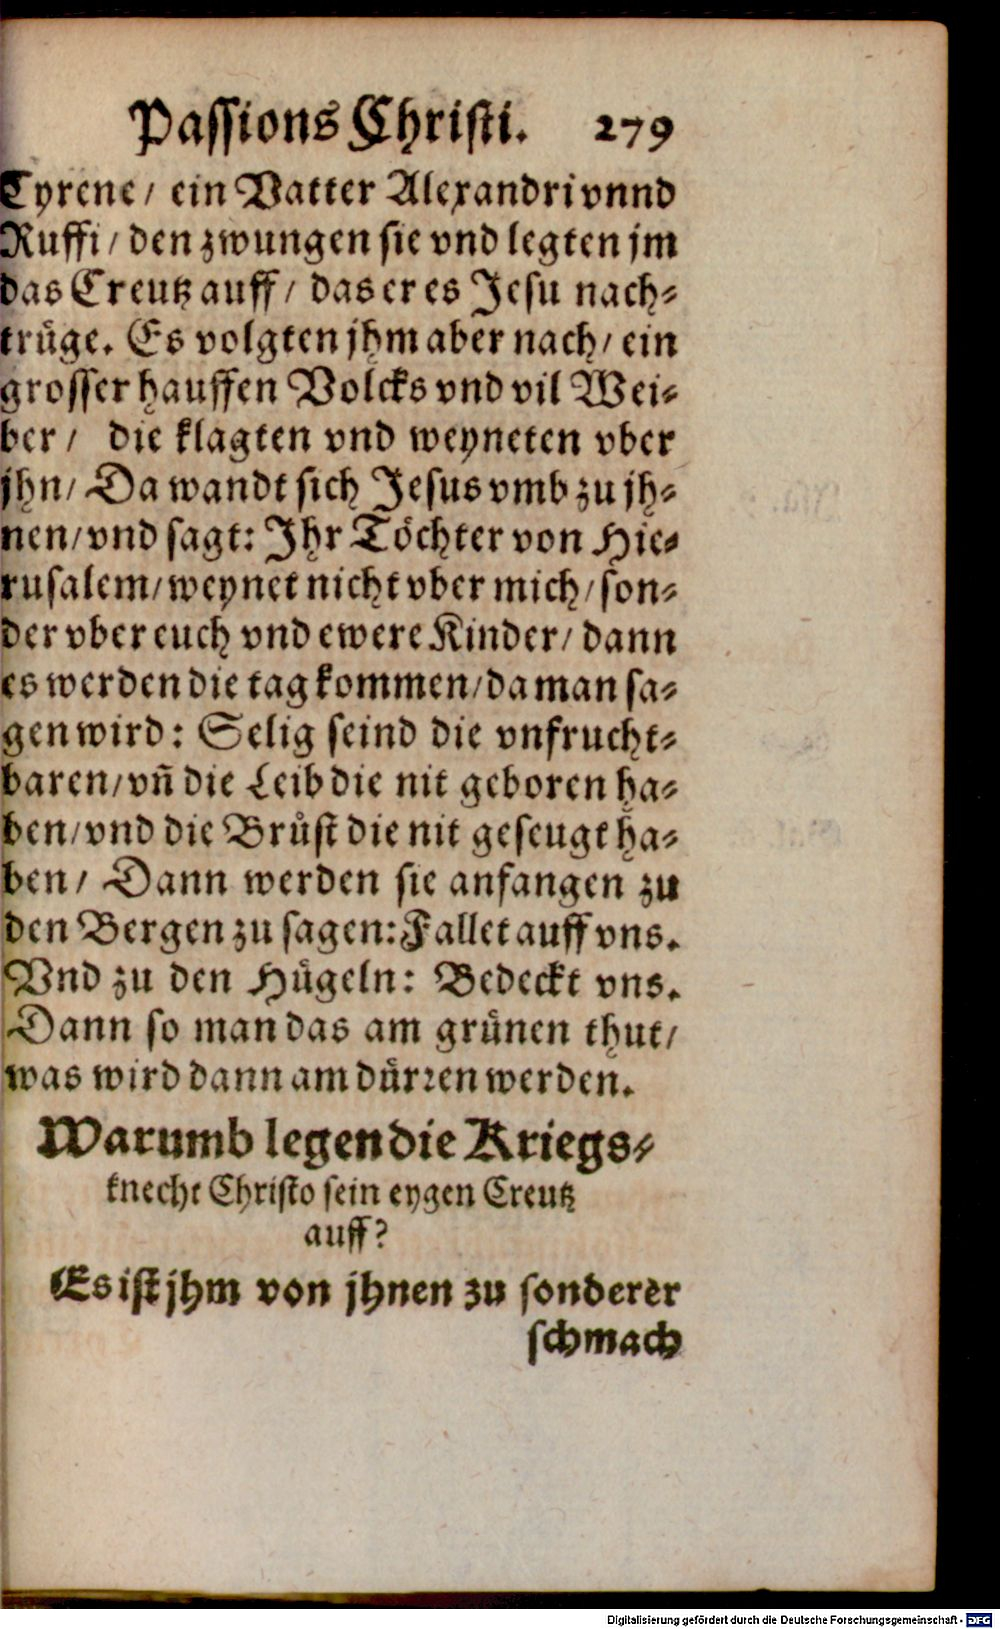 Passions Christi. 279
Tyrene/ ein Vatter Alexandri vnnd
Ruffi/ den zwungen sie vnd legten jm
das Creutz auff/ das er es Jesu nach-
trüge. Es volgten jhm aber nach/ ein
grosser hauffen Volcks vnd vil Wei-
ber/ die klagten vnd weyneten vber
jhn/ Da wandt sich Jesus vmb zu jh-
nen/ vnd sagt: Ihr Töchter von Hie-
rusalem/ weynet nicht vber mich/ son-
der vber euch vnd ewere Kinder/ dann
es werden die tag kommen/ da man sa-
gen wird: Selig seind die vnfrucht-
baren/ vñ die Leib die nit geboren ha-
ben/ vnd die Brüst die nit geseugt ha-
ben/ Dann werden sie anfangen zu
den Bergen zu sagen: Fallet auff vns.
Vnd zu den Hügeln: Bedeckt vns.
Dann so man das am grünen thut/
was wird dann am dürren werden.
Warumb legen die Kriegs-
knecht Christo sein eygen Creutz
auff?
Es ist jhm von jhnen zu sonderer
schmach
Digitalisierung gefördert durch die Deutsche Forschungsgemeinschaft - DFG